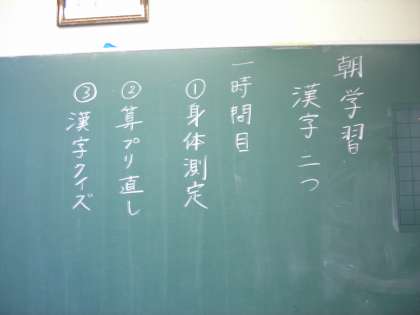 朝学習
漢字二つ
一時間目
①身体測定
②算プリ直し
③漢字クイズ